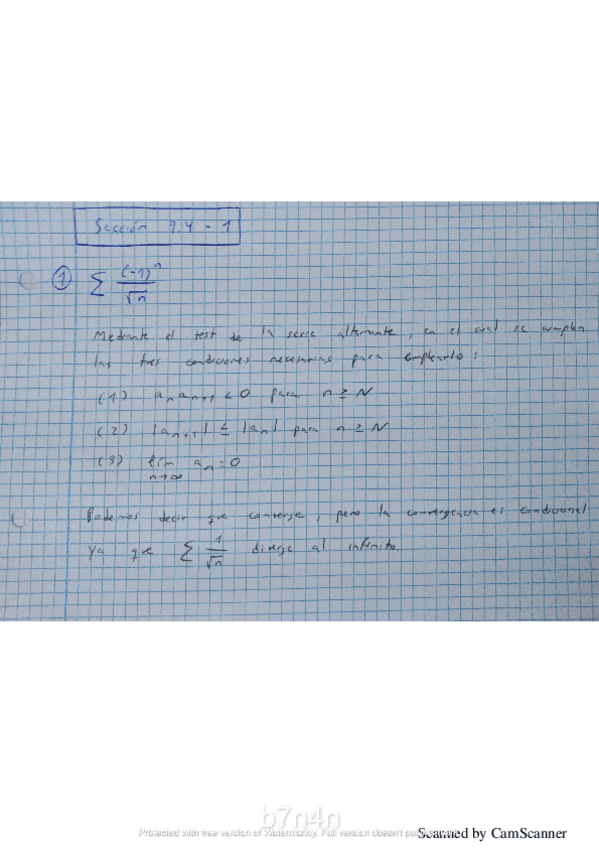 Sección 9.4 - 1
① ∑ (-1)^n / √n
Mediante el test de la serie alternante, en el cual se cumplen
las tres condiciones necesarias para emplearlo:
(1) a_n a_{n+1} < 0 para n ≥ N
(2) |a_{n+1}| ≤ |a_n| para n ≥ N
(3) lím_{n→∞} a_n = 0
Podemos decir que converge, pero la convergencia es condicional
ya que ∑ 1/√n diverge al infinito.
b7n4n
Protected with free version of Watermarkly. Full version doesn't put
Scanned by CamScanner